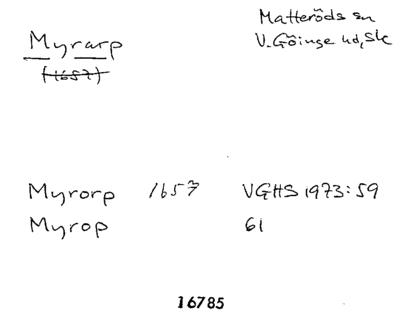 Myrarp
(1657)
Matteröds sn
V. Göinge hd, Sk
Myrorp 1657 VGHS 1973:59
Myrop 61
16785